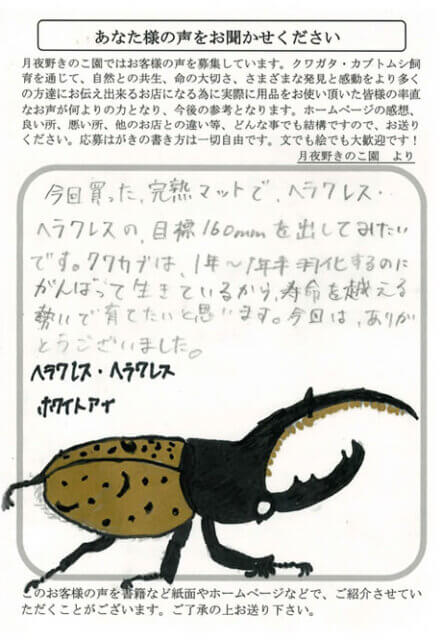 あなた様の声をお聞かせください
月夜野きのこ園ではお客様の声を募集しています。クワガタ・カブトムシ飼
育を通じて、自然との共生、命の大切さ、さまざまな発見と感動をより多く
の方達にお伝え出来るお店になる為に実際に用品をお使い頂いた皆様の率直
なお声が何よりの力となり、今後の参考となります。ホームページの感想、
良い所、悪い所、他のお店との違い等、どんな事でも結構ですので、お送り
ください。応募はがきの書き方は一切自由です。文でも絵でも大歓迎です！
月夜野きのこ園　より
今回買った、完熟マットで、ヘラクレス・
ヘラクレスの、目標160mmを出してみたい
です。クワカブは、1年〜1年半羽化するのに
がんばって生きているから、寿命を越える
勢いで育てたいと思います。今回は、ありが
とうございました。
ヘラクレス・ヘラクレス
ホワイトアイ
このお客様の声を書籍など紙面やホームページなどで、ご紹介させてい
ただくことがございます。ご了承の上お送り下さい。